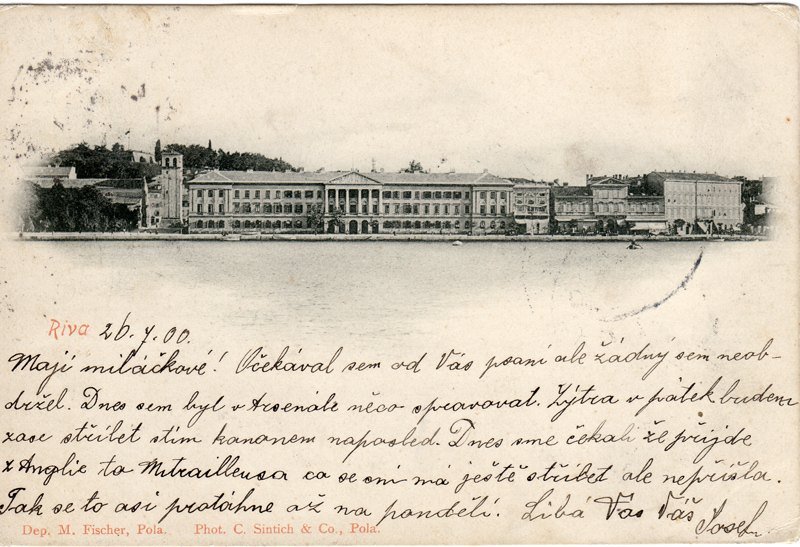 Riva 26.7.00.
Mají miláčkové! Očekával sem od Vás psaní ale žádný sem neob-
držel. Dnes sem byl v Arsenále něco spravovat. Zýtra v pátek budem
zase střílet stím kanonem naposled. Dnes sme čekali že přijde
z Anglie ta Mitrailleusa co se sní má ještě střílet ale nepřišla.
Tak se to asi protáhne až na pondělí. Líbá Vás Váš Josef
Dep. M. Fischer, Pola. Phot. C. Sintich & Co., Pola.